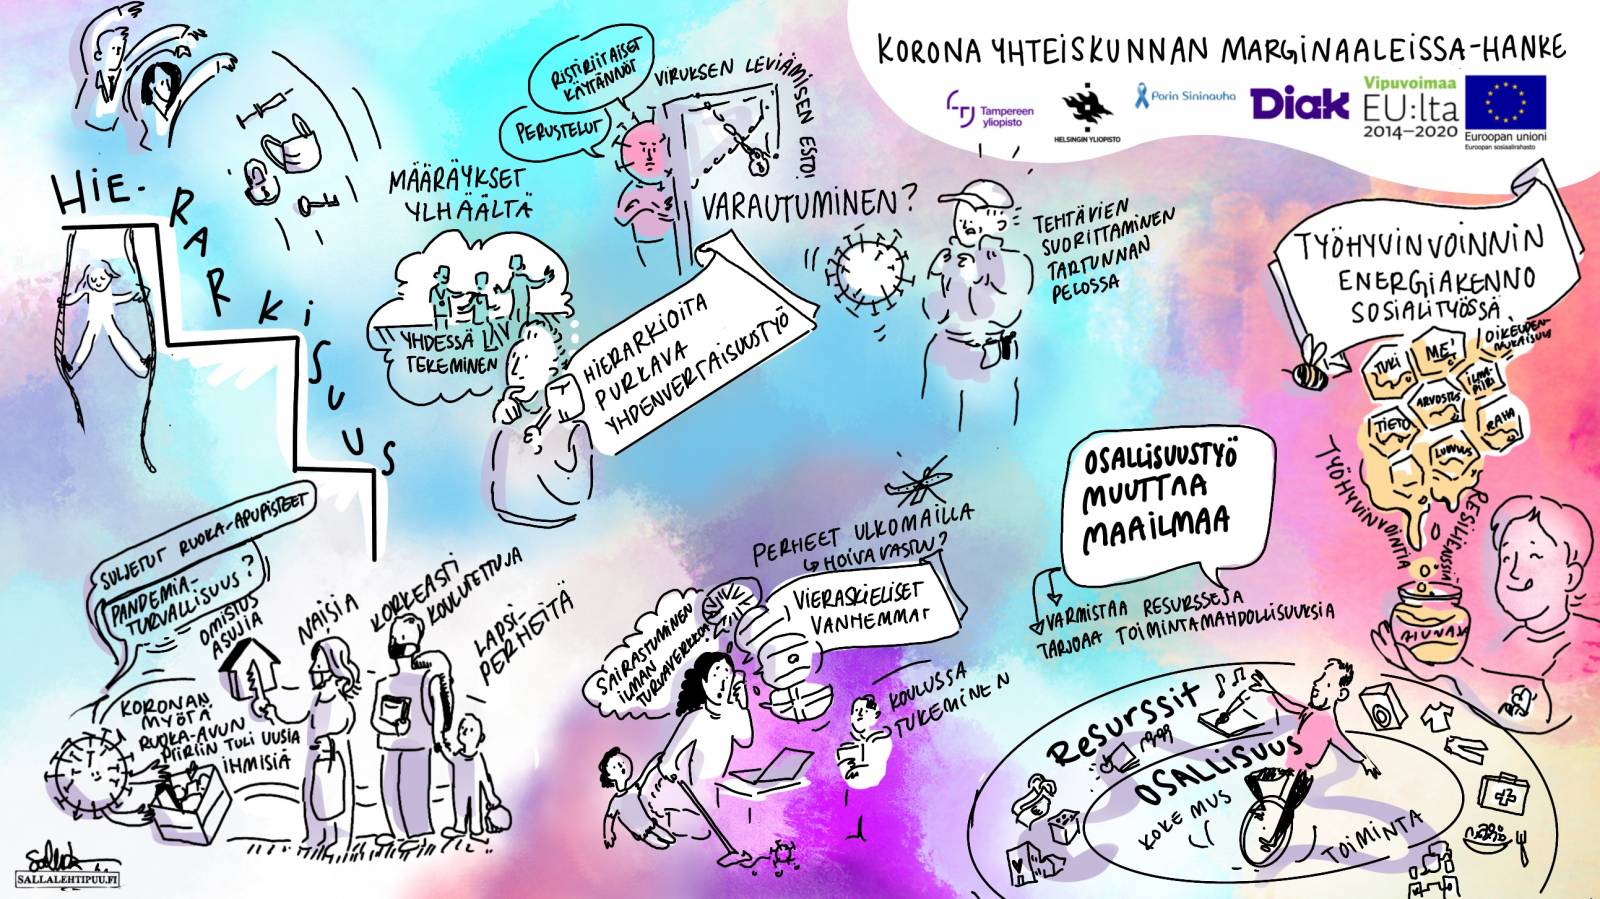 KORONA YHTEISKUNNAN MARGINAALEISSA-HANKE
Tampereen
yliopisto
HELSINGIN YLIOPISTO
Porin Sininauha
Diak
Vipuvoimaa
EU:lta
2014–2020
Euroopan unioni
Euroopan sosiaalirahasto
HIE-
RARKISUUS
MÄÄRÄYKSET
YLHÄÄLTÄ
RISTIRIITAISET
KÄYTÄNNÖT
PERUSTELUT
VIRUKSEN LEVIÄMISEN ESTO!
VARAUTUMINEN?
YHDESSÄ
TEKEMINEN
HIERARKIOITA
PURKAVA
YHDENVERTAISUUSTYÖ
TEHTÄVIEN
SUORITTAMINEN
TARTUNNAN
PELOSSA
TYÖHYVINVOINNIN
ENERGIAKENNO
SOSIALITYÖSSÄ
TUKI
ME!
OIKEUDEN-
MUKAISUUS
ILMA-
PIIRI
ARVOSTUS
TIETO
RAHA
LUOVUUS
TYÖHYVINVOINTIA
RESILIENSSIÄ
HUNAJA
SULJETUT RUOKA-APUPISTEET
PANDEMIA-
TURVALLISUUS?
OMISTUS
ASUJIA
NAISIA
KORKEASTI
KOULUTETTUJA
LAPSI-
PERHEITÄ
KORONAN
MYÖTÄ
RUOKA-AVUN
PIIRIIN TULI UUSIA
IHMISIÄ
PERHEET ULKOMAILLA
HOIVAVASTUU?
VIERASKIELISET
VANHEMMAT
SAIRASTUMINEN
ILMAN
TURVAVERKKOA
KOULUSSA
TUKEMINEN
OSALLISUUSTYÖ
MUUTTAA
MAAILMAA
VARMISTAA RESURSSEJA
TARJOAA TOIMINTAMAHDOLLISUUKSIA
RESURSSIT
OSALLISUUS
KOKEMUS
TOIMINTA
SALLALEHTIPUU.FI